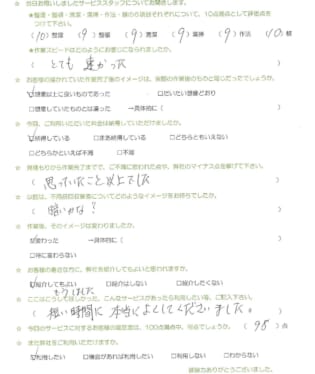 ☆ 当日お伺いしましたサービススタッフについてお聞きします。
★整理・整頓・清潔・清掃・作法・躾の6項目それぞれについて、10点満点として評価点を
つけて下さい。
(10)整理 (9)整頓 (9)清潔 (9)清掃 (9)作法 (10)躾
★作業スピードはどのようにお感じになられましたか。
( とても 速かった )
☆ お客様の描かれていた作業完了後のイメージは、実際の作業後のものと同じだったでしょうか。
☑想像以上に良いものであった □だいたい想像どおり
□想像していたものとは違った →具体的に( )
☆ 今回、ご利用いただいた料金は納得していただけましたか。
☑納得している □まあ納得している □どちらともいえない
□どちらかといえば不満 □不満
☆ 見積もりから作業完了までで、ご不満に思われた点や、弊社のマイナス点を挙げて下さい。
( 思っていたこと以上でした )
☆ 以前は、不用品回収業者についてどのようなイメージをお持ちでしたか。
( 暗いかな? )
☆ 作業後、そのイメージは変わりましたか。
☑変わった →具体的に( )
□特に変わらない
☆ お客様の身近な方に、弊社を紹介してもよいと思われますか。
☑紹介してもよい □紹介はしない □紹介したくない
もうしました
☆ ここはこうしてほしかった、こんなサービスがあったら利用したい等、ご記入下さい。
( 短い時間に 本当によくしてくださいました。 )
☆ 今回のサービスに対するお客様の満足度は、100点満点中、何点でしょうか。 (98)点
☆ また弊社をご利用いただけますか。
☑利用したい □機会があれば利用したい □利用しない □わからない
ご協力ありがとうございました。